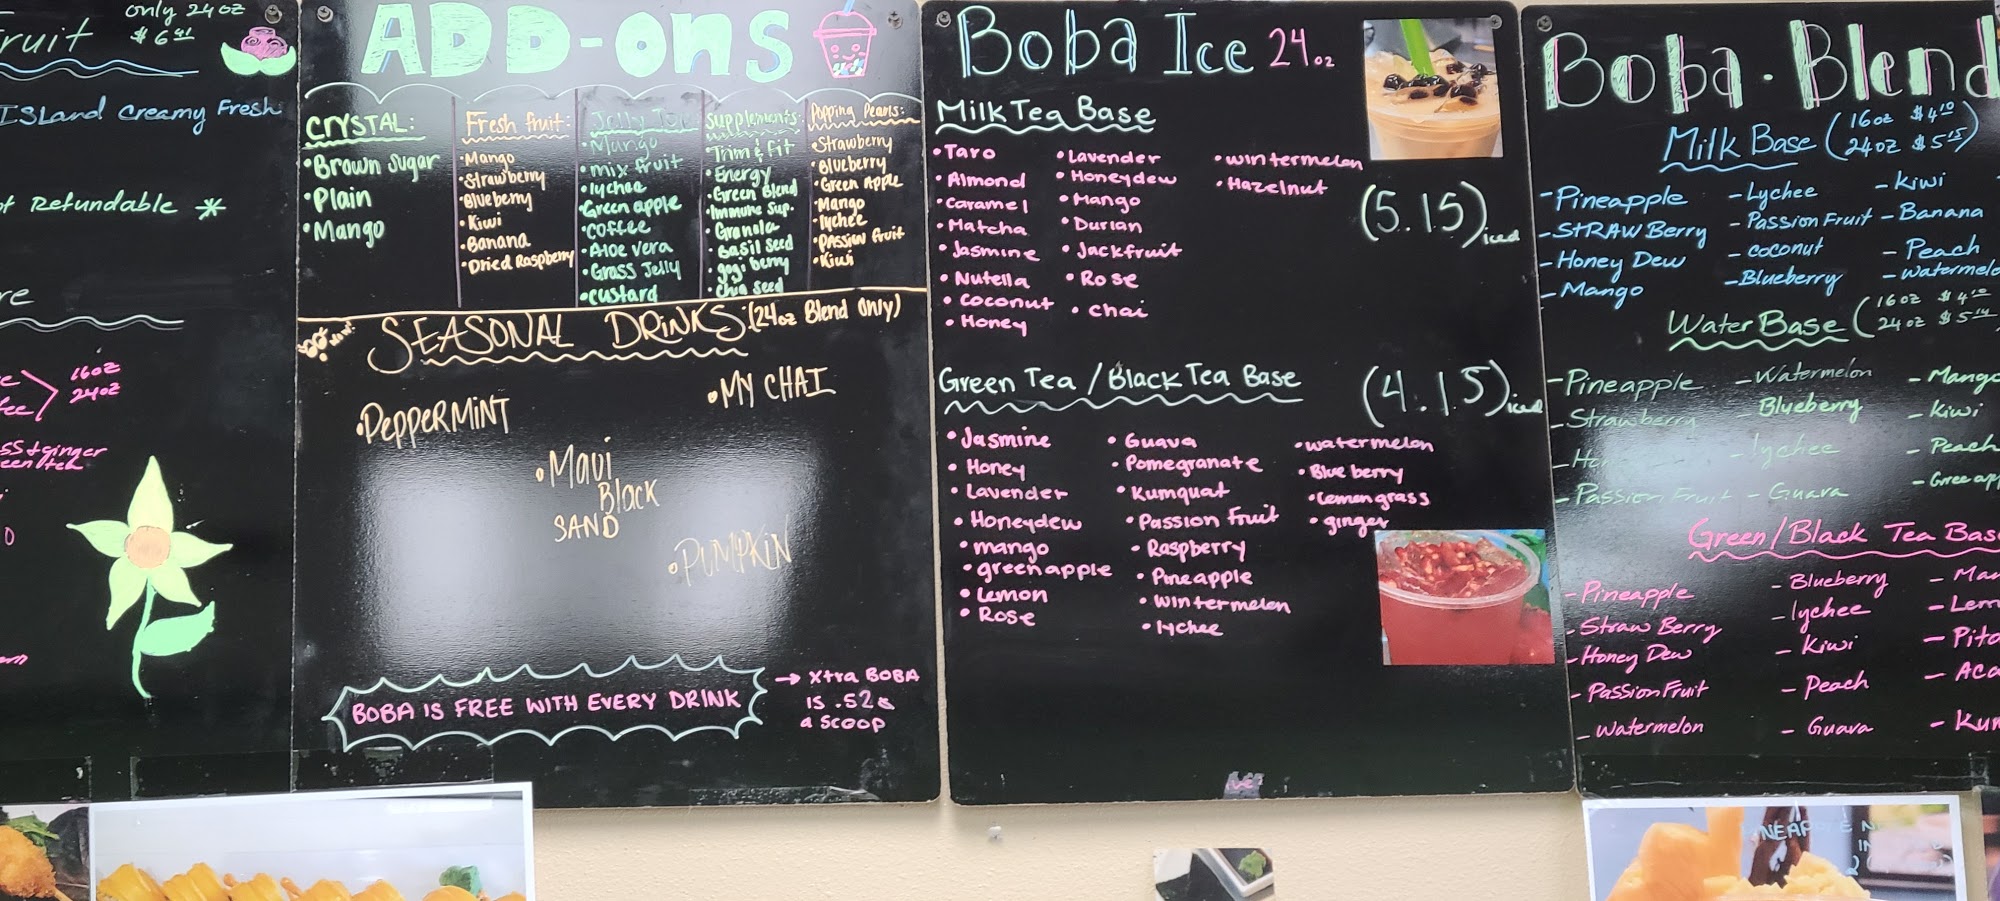 only 24oz
$6.41
ruit
ISLand Creamy Fresh
Refundable *
re
16oz
24oz
ADD-ons
CRYSTAL:
•Brown Sugar
•Plain
•Mango
Fresh fruit:
•Mango
•Strawberry
•Blueberry
•Kiwi
•Banana
•Dried Raspberry
•Mango
•mix fruit
•lychee
•Green apple
•coffee
•Aloe vera
•Grass Jelly
•custard
Supplements:
•Trim & Fit
•Energy
•Green Blend
•Immune Sup.
•Granola
•Basil Seed
•gogi berry
•Chia Seed
Popping Pearls:
•Strawberry
•Blueberry
•Green Apple
•Mango
•lychee
•Passion fruit
•Kiwi
SEASONAL DRINKS: (24oz Blend Only)
•PEPPERMINT
•MY CHAI
•Maui
Black
SAND
•PUMPKIN
BOBA IS FREE WITH EVERY DRINK
→ Xtra BOBA
is .52¢
a SCOOP
Boba Ice 24oz
Milk Tea Base
•Taro
•Almond
•Caramel
•Matcha
•Jasmine
•Nutella
•Coconut
•Honey
•Lavender
•Honeydew
•Mango
•Durian
•Jackfruit
•Rose
•Chai
•wintermelon
•Hazelnut
(5.15) iced
Green Tea / Black Tea Base
(4.15) iced
•Jasmine
•Honey
•Lavender
•Honeydew
•mango
•green apple
•Lemon
•Rose
•Guava
•Pomegranate
•Kumquat
•Passion Fruit
•Raspberry
•Pineapple
•wintermelon
•lychee
•watermelon
•Blue berry
•Lemongrass
•ginger
Boba. Blend
Milk Base (16oz $4.10
24oz $5.15)
-Pineapple
-STRAW Berry
-Honey Dew
-Mango
-Lychee
-Passion Fruit
-coconut
-Blueberry
-Kiwi
-Banana
-Peach
-watermelo
Water Base (16oz $4.10
24oz $5.14
-Pineapple
-Strawberry
-Passion Fruit
-Watermelon
-Blueberry
-lychee
-Guava
-Mango
-Kiwi
-Peach
-Green app
Green/Black Tea Base
-Pineapple
-Straw Berry
-Honey Dew
-Passion Fruit
-Watermelon
-Blueberry
-lychee
-Kiwi
-Peach
-Guava
-Man
-Lem
-Pita
-Aca
-Kum